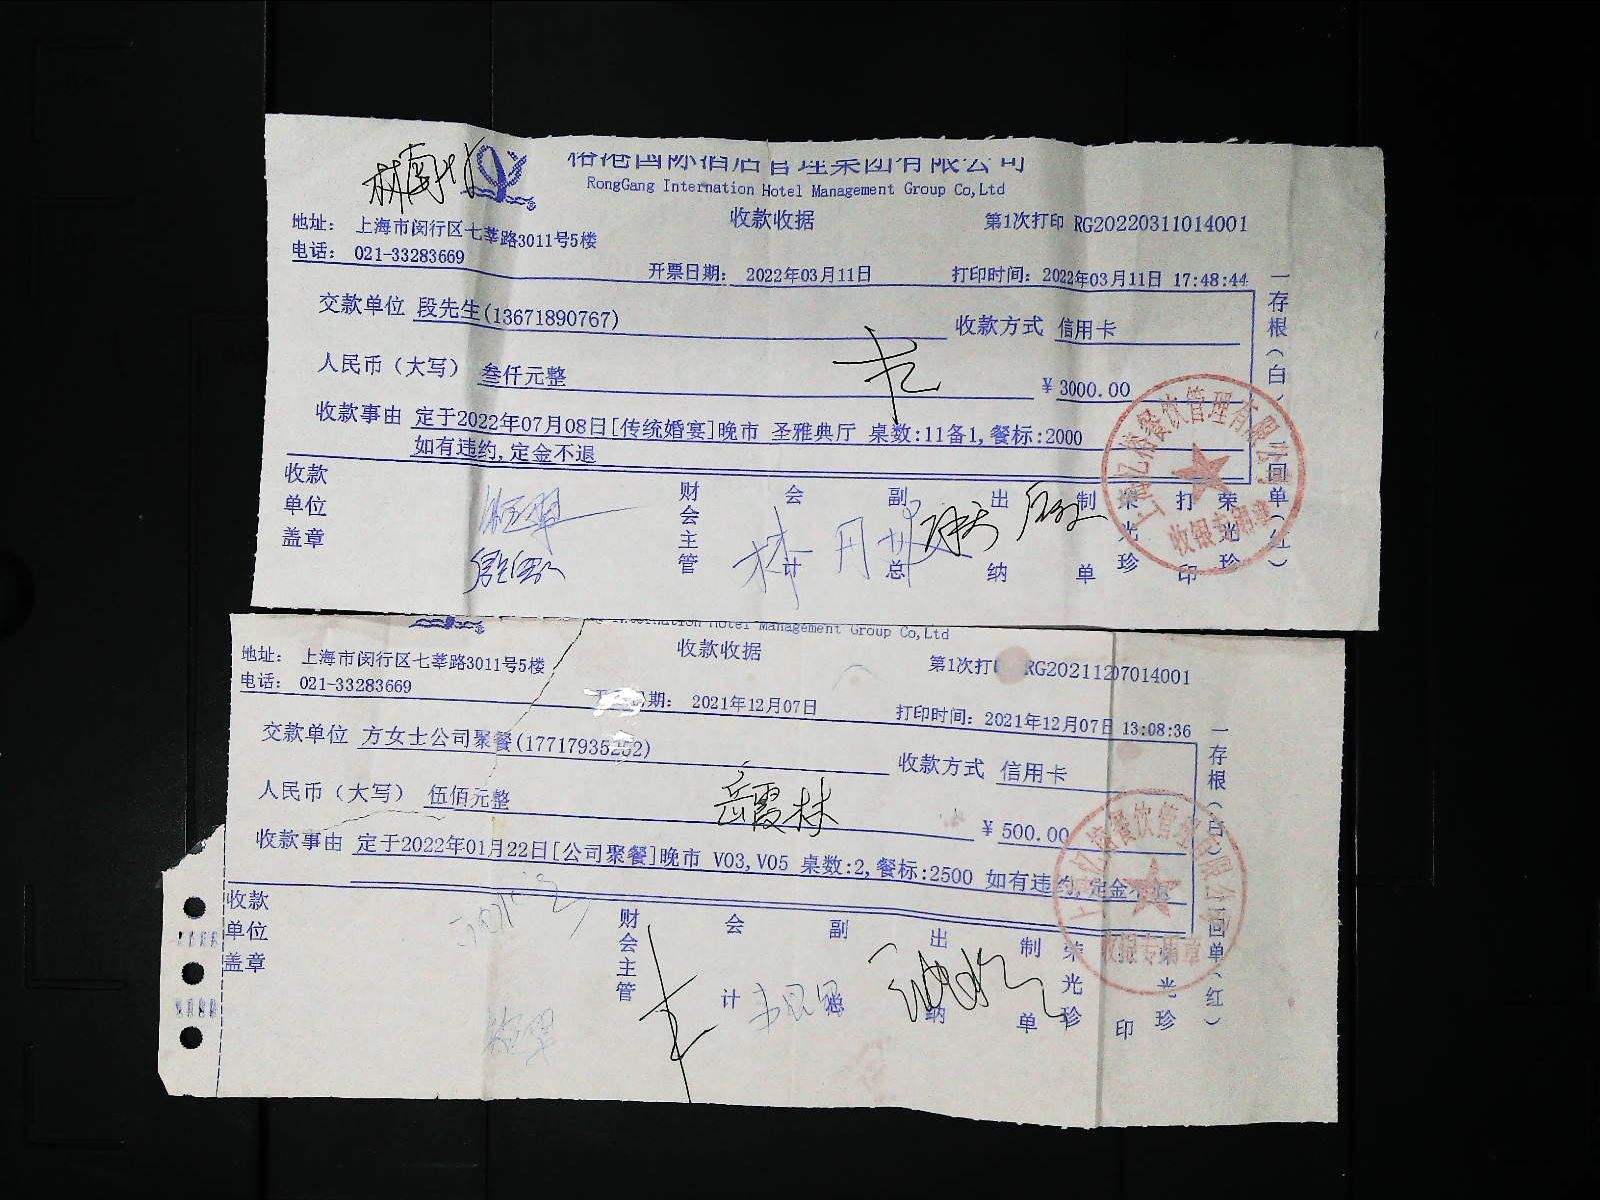 榕港国际酒店管理集团有限公司
RongGang Internation Hotel Management Group Co,Ltd
收款收据
第1次打印 RG20220311014001
地址： 上海市闵行区七莘路3011号5楼
电话： 021-33283669
开票日期： 2022年03月11日
打印时间：2022年03月11日 17:48:44
交款单位 段先生(13671890767)
收款方式 信用卡
人民币（大写） 叁仟元整
¥ 3000.00
收款事由 定于2022年07月08日[传统婚宴]晚市 圣雅典厅 桌数:11备1,餐标:2000
如有违约,定金不退
收款单位盖章
财会主管
会计
副总
出纳
制单
荣光珍
打印
荣光珍
一存根（白）
二回单（红）
收银专用章
Management Group Co,Ltd
收款收据
第1次打印 RG20211207014001
地址： 上海市闵行区七莘路3011号5楼
电话： 021-33283669
日期： 2021年12月07日
打印时间：2021年12月07日 13:08:36
交款单位 方女士公司聚餐(17717935252)
收款方式 信用卡
人民币（大写） 伍佰元整
岳霞林
¥ 500.00
收款事由 定于2022年01月22日[公司聚餐]晚市 V03,V05 桌数:2,餐标:2500 如有违约,定金不退
收款单位盖章
财会主管
会计
副总
出纳
制单
荣光珍
印
荣光珍
一存根（白）
二回单（红）
收银专用章